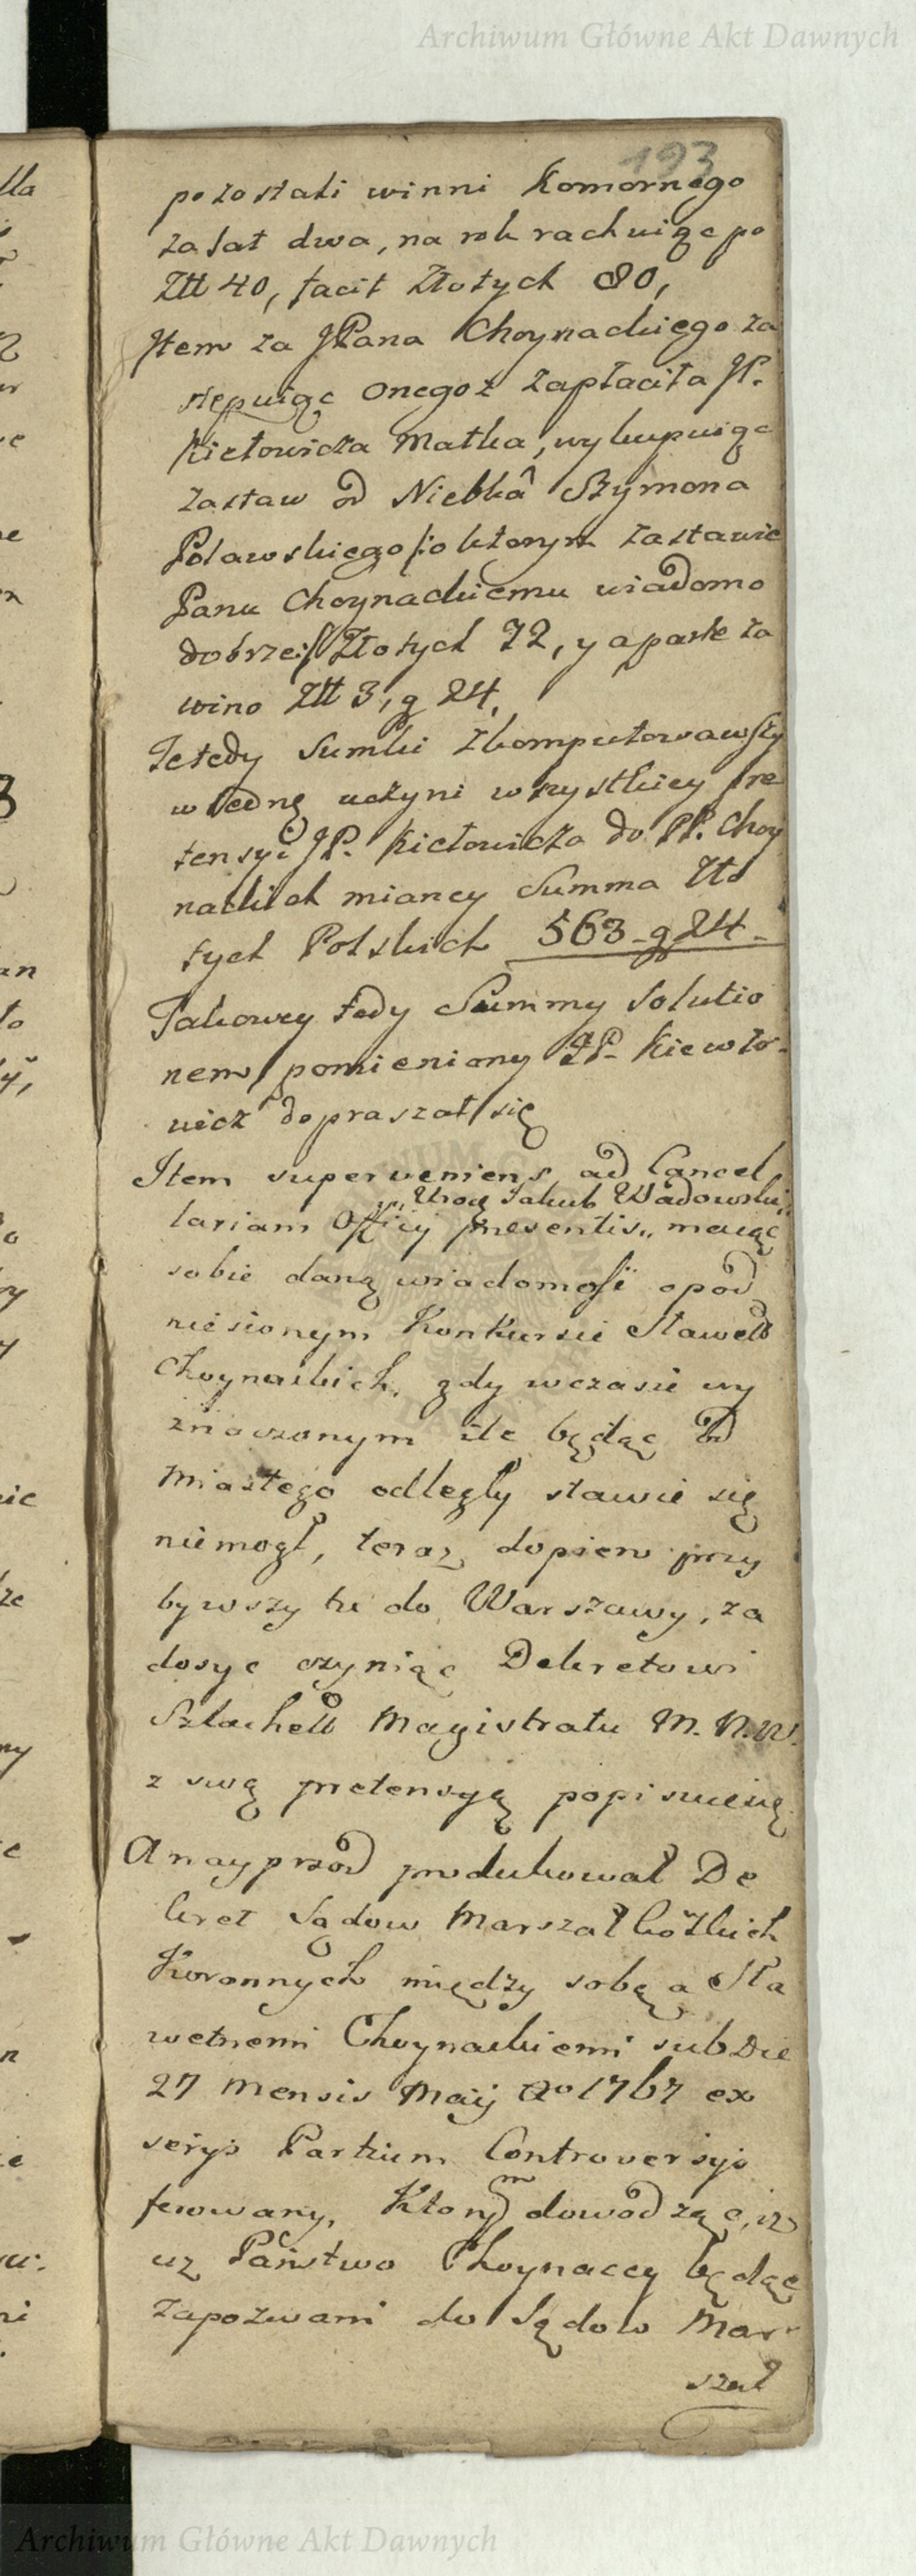 Archiwum Główne Akt Dawnych
193
pozostali winni Komornego
za lat dwa, na rok rachuiąc po
Złł 40, facit Złotych 80,
Item za JPana Choynackiego za
stępuiąc onegoz zapłaciła JP.
Kiełowicza Matka, wykupuiąc
zastaw od Niebka Szymona
Polawskiego /: o ktorym zastawie
Panu Choynackiemu wiadomo
dobrze :/ Złotych 72, y aparte za
wino Złł 3, g 24,
Te tedy Sumki zkomputowawszy
w iednę uczyni wszystkiey pre
tensyi JP. Kiełowicza do PP. Choy
nackich mianey Summa Zło
tych Polskich 563 - g 24 -
Takowey tedy Summy Solutio
nem pomieniony JP. Kiewło-
wicz dopraszał się
Item superveniens ad Cancel
Urod Jakub Wadowski
lariam Officij presentis,, maiąc
sobie daną wiadomość o pod
niesionym Konkursie Sławetł
Choynackich, gdy wczasie wy
znaczonym ile będąc od
Miastego odległy stawić się
niemogł, teraz dopiero przy
bywszy tu do Warszawy, za
dosyc czyniąc Dekretowi
Szlachetł Magistratu M. N. W.
z swą pretensyą popisuiesię
A nayprzod produkował De
kret Sądow Marszałkowskich
Koronnych między sobą a Sła
wetnemi Choynackiemi sub Die
27 Mensis Maij Ao 1767 ex
serijs Partium Controversijs
ferowany, Ktorym dowodząc, iz
uz Państwo Choynaccy będąc
zapozwani do Sądow Mar
szał
Archiwum Główne Akt Dawnych